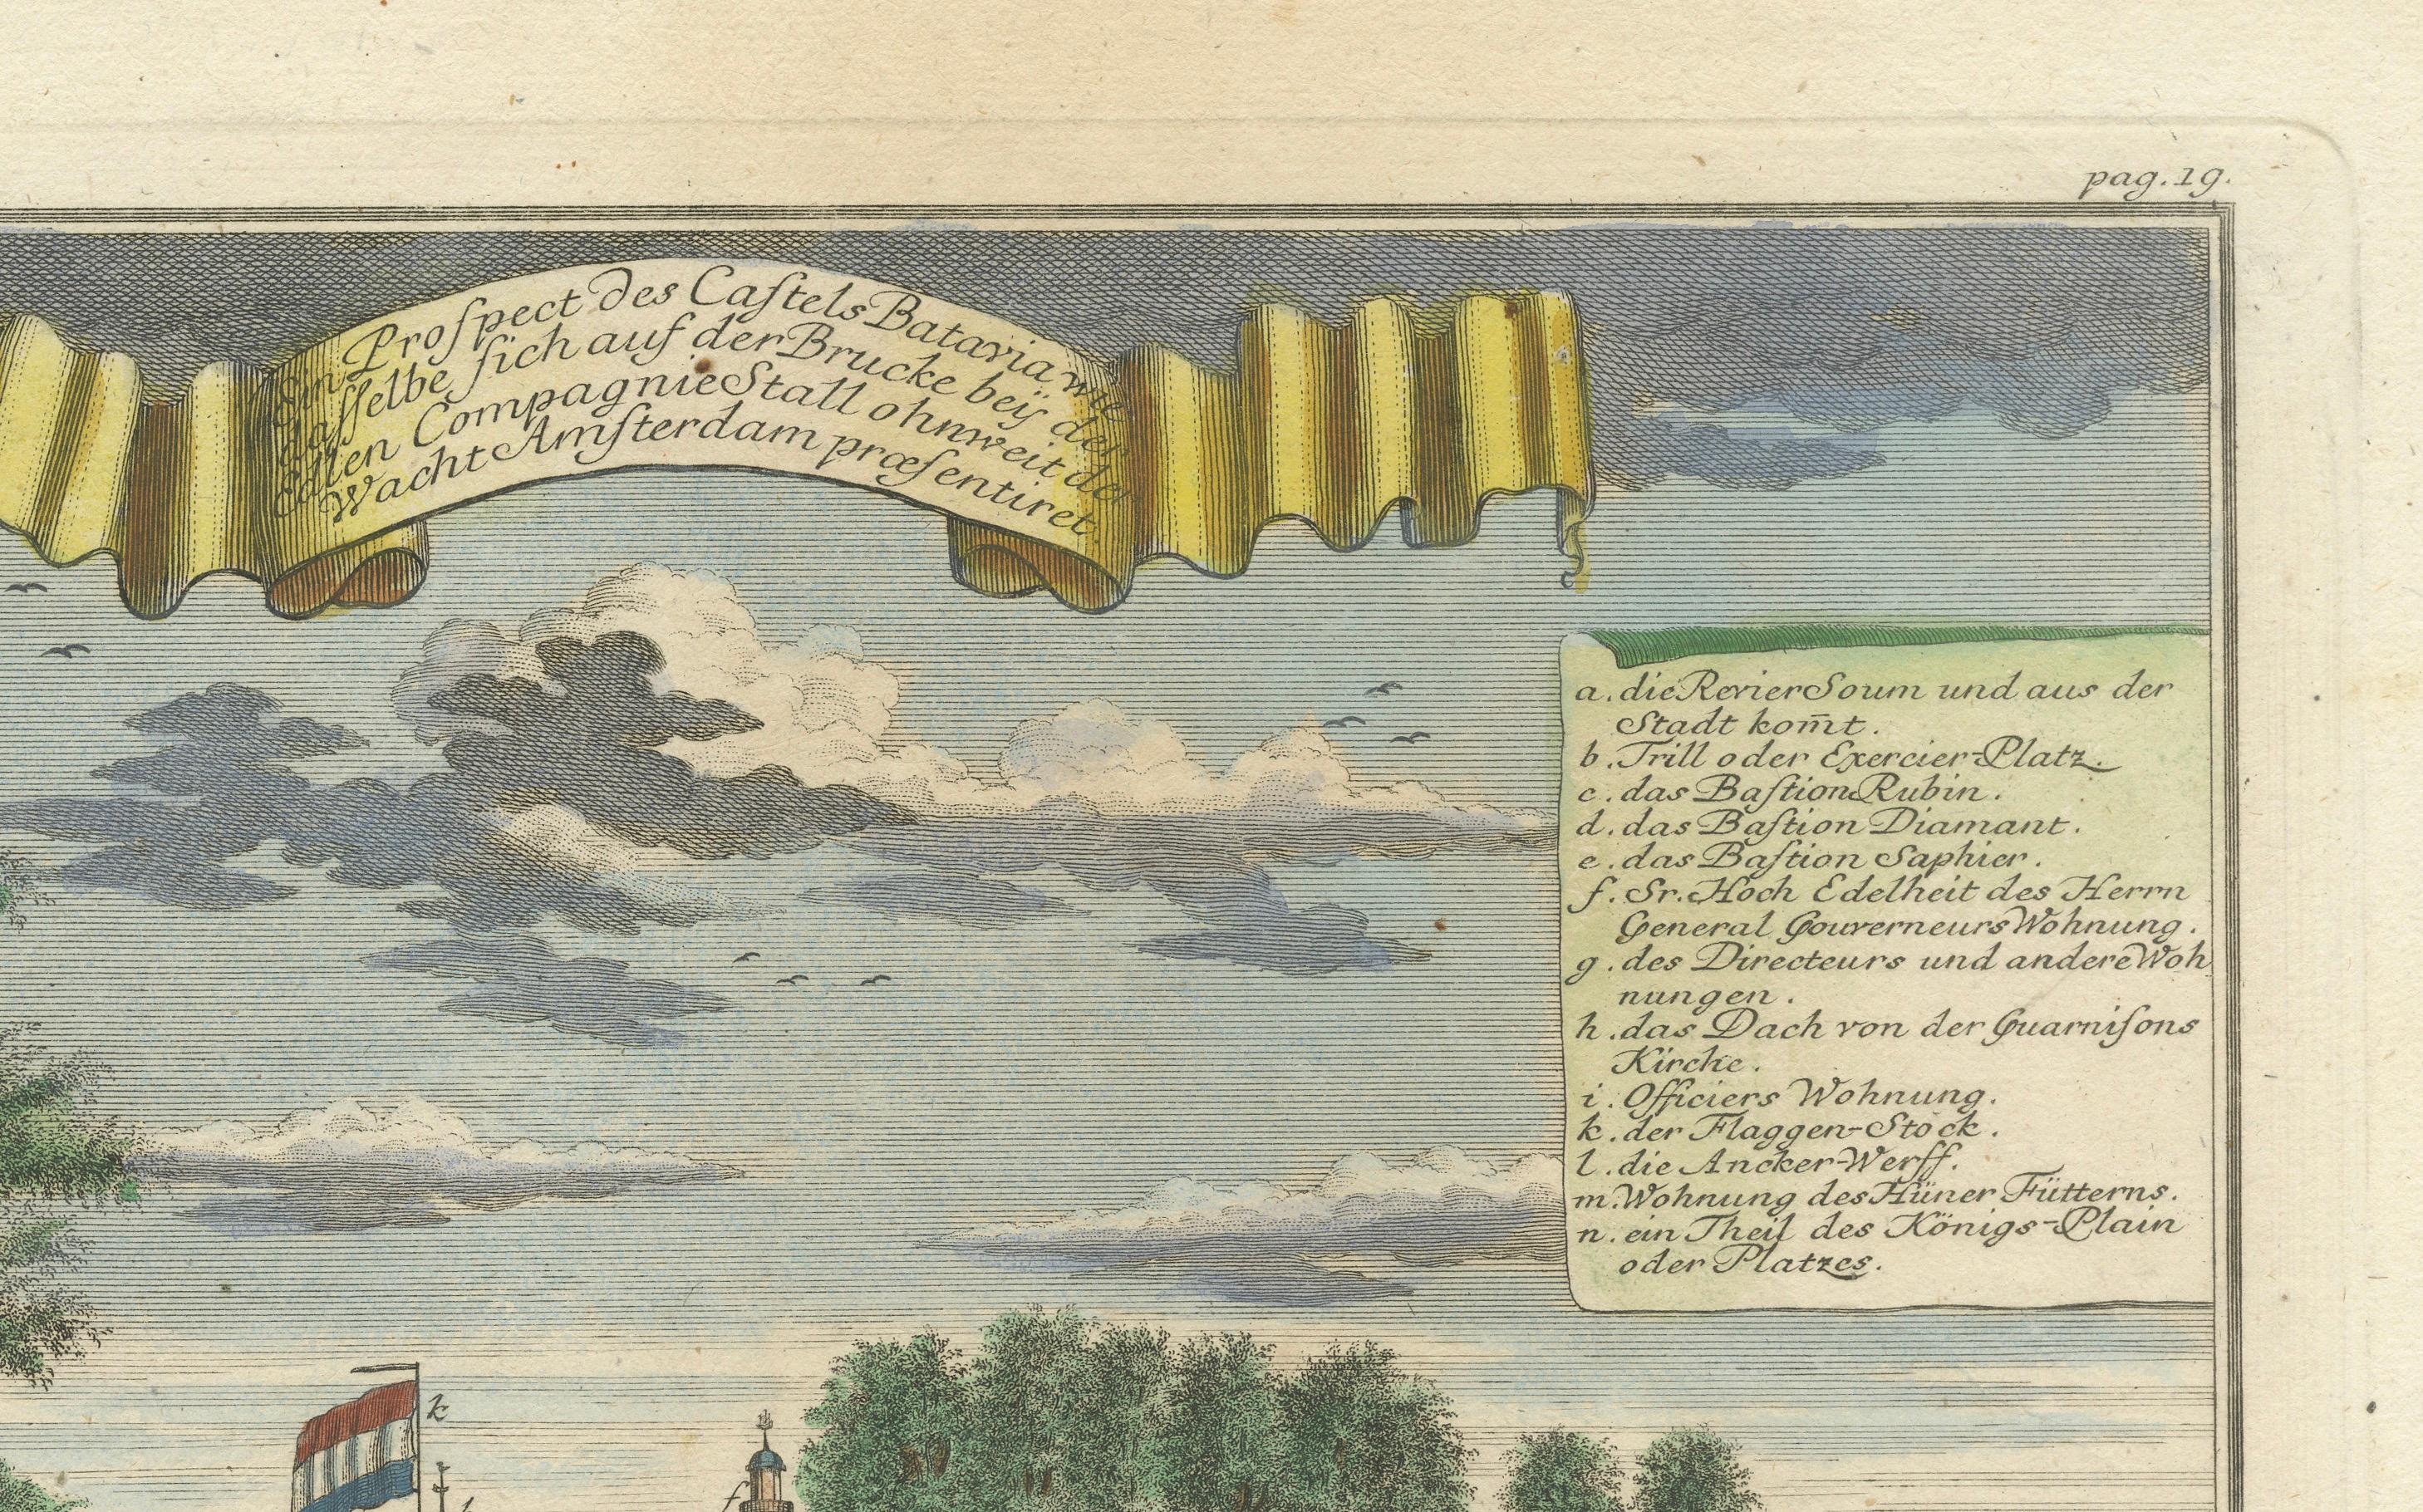 pag. 19.
Ein Proſpect des Caſtels Batavia wie
daſſelbe ſich auf der Brucke beÿ der
Edlen Compagnie Stall ohnweit der
Wacht Amſterdam præſentiret.
a. die Revier Soum und aus der
Stadt kom̄t.
b. Trill oder Exercier-Platz.
c. das Baſtion Rubin.
d. das Baſtion Diamant.
e. das Baſtion Saphier.
f. Sr. Hoch Edelheit des Herrn
General Gouverneurs Wohnung.
g. des Directeurs und andere Woh
nungen.
h. das Dach von der Guarniſons
Kirche.
i. Officiers Wohnung.
k. der Flaggen-Stock.
l. die Ancker-Werff.
m. Wohnung des Hüner Fütterns.
n. ein Theil des Königs-Plain
oder Platzes.
k
f